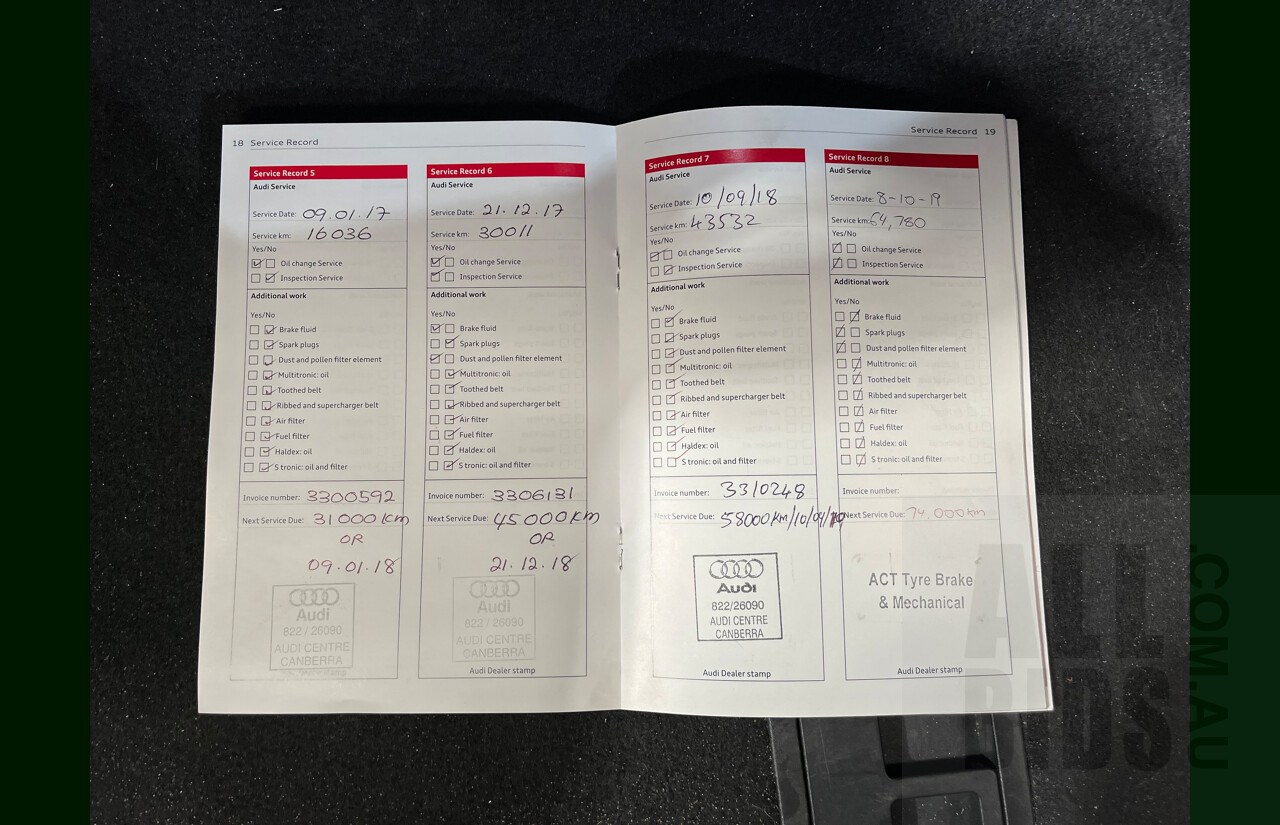 18 Service Record
Service Record 5
Audi Service
Service Date: 09.01.17
Service km: 16036
Yes/No
Oil change Service
Inspection Service
Additional work
Yes/No
Brake fluid
Spark plugs
Dust and pollen filter element
Multitronic: oil
Toothed belt
Ribbed and supercharger belt
Air filter
Fuel filter
Haldex: oil
S tronic: oil and filter
Invoice number: 3300592
Next Service Due: 31000 km
OR
09.01.18
Audi
822 / 26090
AUDI CENTRE
CANBERRA
Service Record 6
Audi Service
Service Date: 21.12.17
Service km: 30011
Yes/No
Oil change Service
Inspection Service
Additional work
Yes/No
Brake fluid
Spark plugs
Dust and pollen filter element
Multitronic: oil
Toothed belt
Ribbed and supercharger belt
Air filter
Fuel filter
Haldex: oil
S tronic: oil and filter
Invoice number: 3306131
Next Service Due: 45000km
OR
21.12.18
Audi
822 / 26090
AUDI CENTRE
CANBERRA
Audi Dealer stamp
Service Record 19
Service Record 7
Audi Service
Service Date: 10/09/18
Service km: 43532
Yes/No
Oil change Service
Inspection Service
Additional work
Yes/No
Brake fluid
Spark plugs
Dust and pollen filter element
Multitronic: oil
Toothed belt
Ribbed and supercharger belt
Air filter
Fuel filter
Haldex: oil
S tronic: oil and filter
Invoice number: 3310248
Next Service Due: 58000km/10/09/
Audi
822/26090
AUDI CENTRE
CANBERRA
Audi Dealer stamp
Service Record 8
Audi Service
Service Date: 8-10-19
Service km: 64,780
Yes/No
Oil change Service
Inspection Service
Additional work
Yes/No
Brake fluid
Spark plugs
Dust and pollen filter element
Multitronic: oil
Toothed belt
Ribbed and supercharger belt
Air filter
Fuel filter
Haldex: oil
S tronic: oil and filter
Invoice number:
Next Service Due: 74,000km
ACT Tyre Brake
& Mechanical
Audi Dealer stamp
ALL
BIDS
.COM.AU